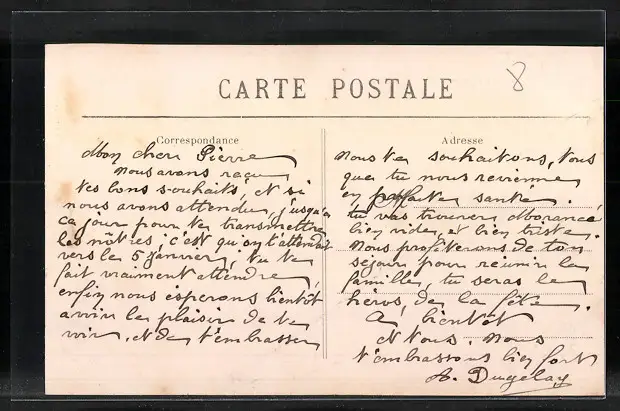 8
CARTE POSTALE
Correspondance
Mon cher Pierre
nous avons reçu
tes bons souhaits, et si
nous avons attendu jusqu'à
ce jour pour te transmettre
les nôtres, c'est qu'on t'attendait
vers le 5 Janvier, tu te
fait vraiment attendre,
enfin nous espérons bientôt
avoir le plaisir de te
voir, et de t'embrasser
Adresse
nous te souhaitons, tous
que tu nous revienne
en parfaite santé.
tu vas trouver
bien vide, et bien triste.
nous profiterons de ton
séjour pour réunir la
famille, tu seras le
héros, de la fête.
A bientôt
et tous, nous
t'embrassons bien fort
A.